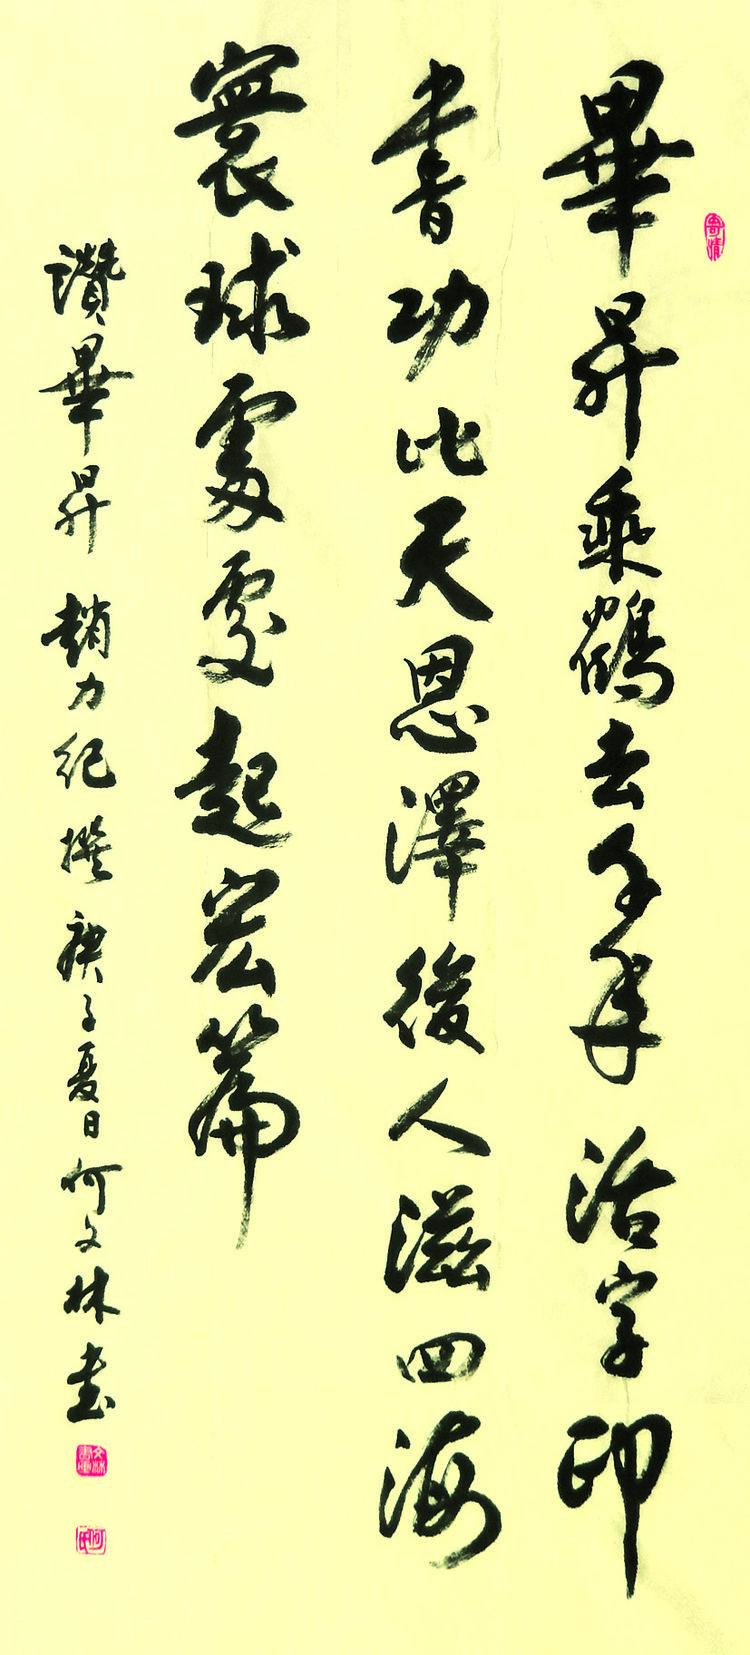 畢昇乘鶴去千年活字印
書功比天恩澤後人滋四海
寰球處處起宏篇
讚畢昇 趙力紀撰 庚子夏日何文林书